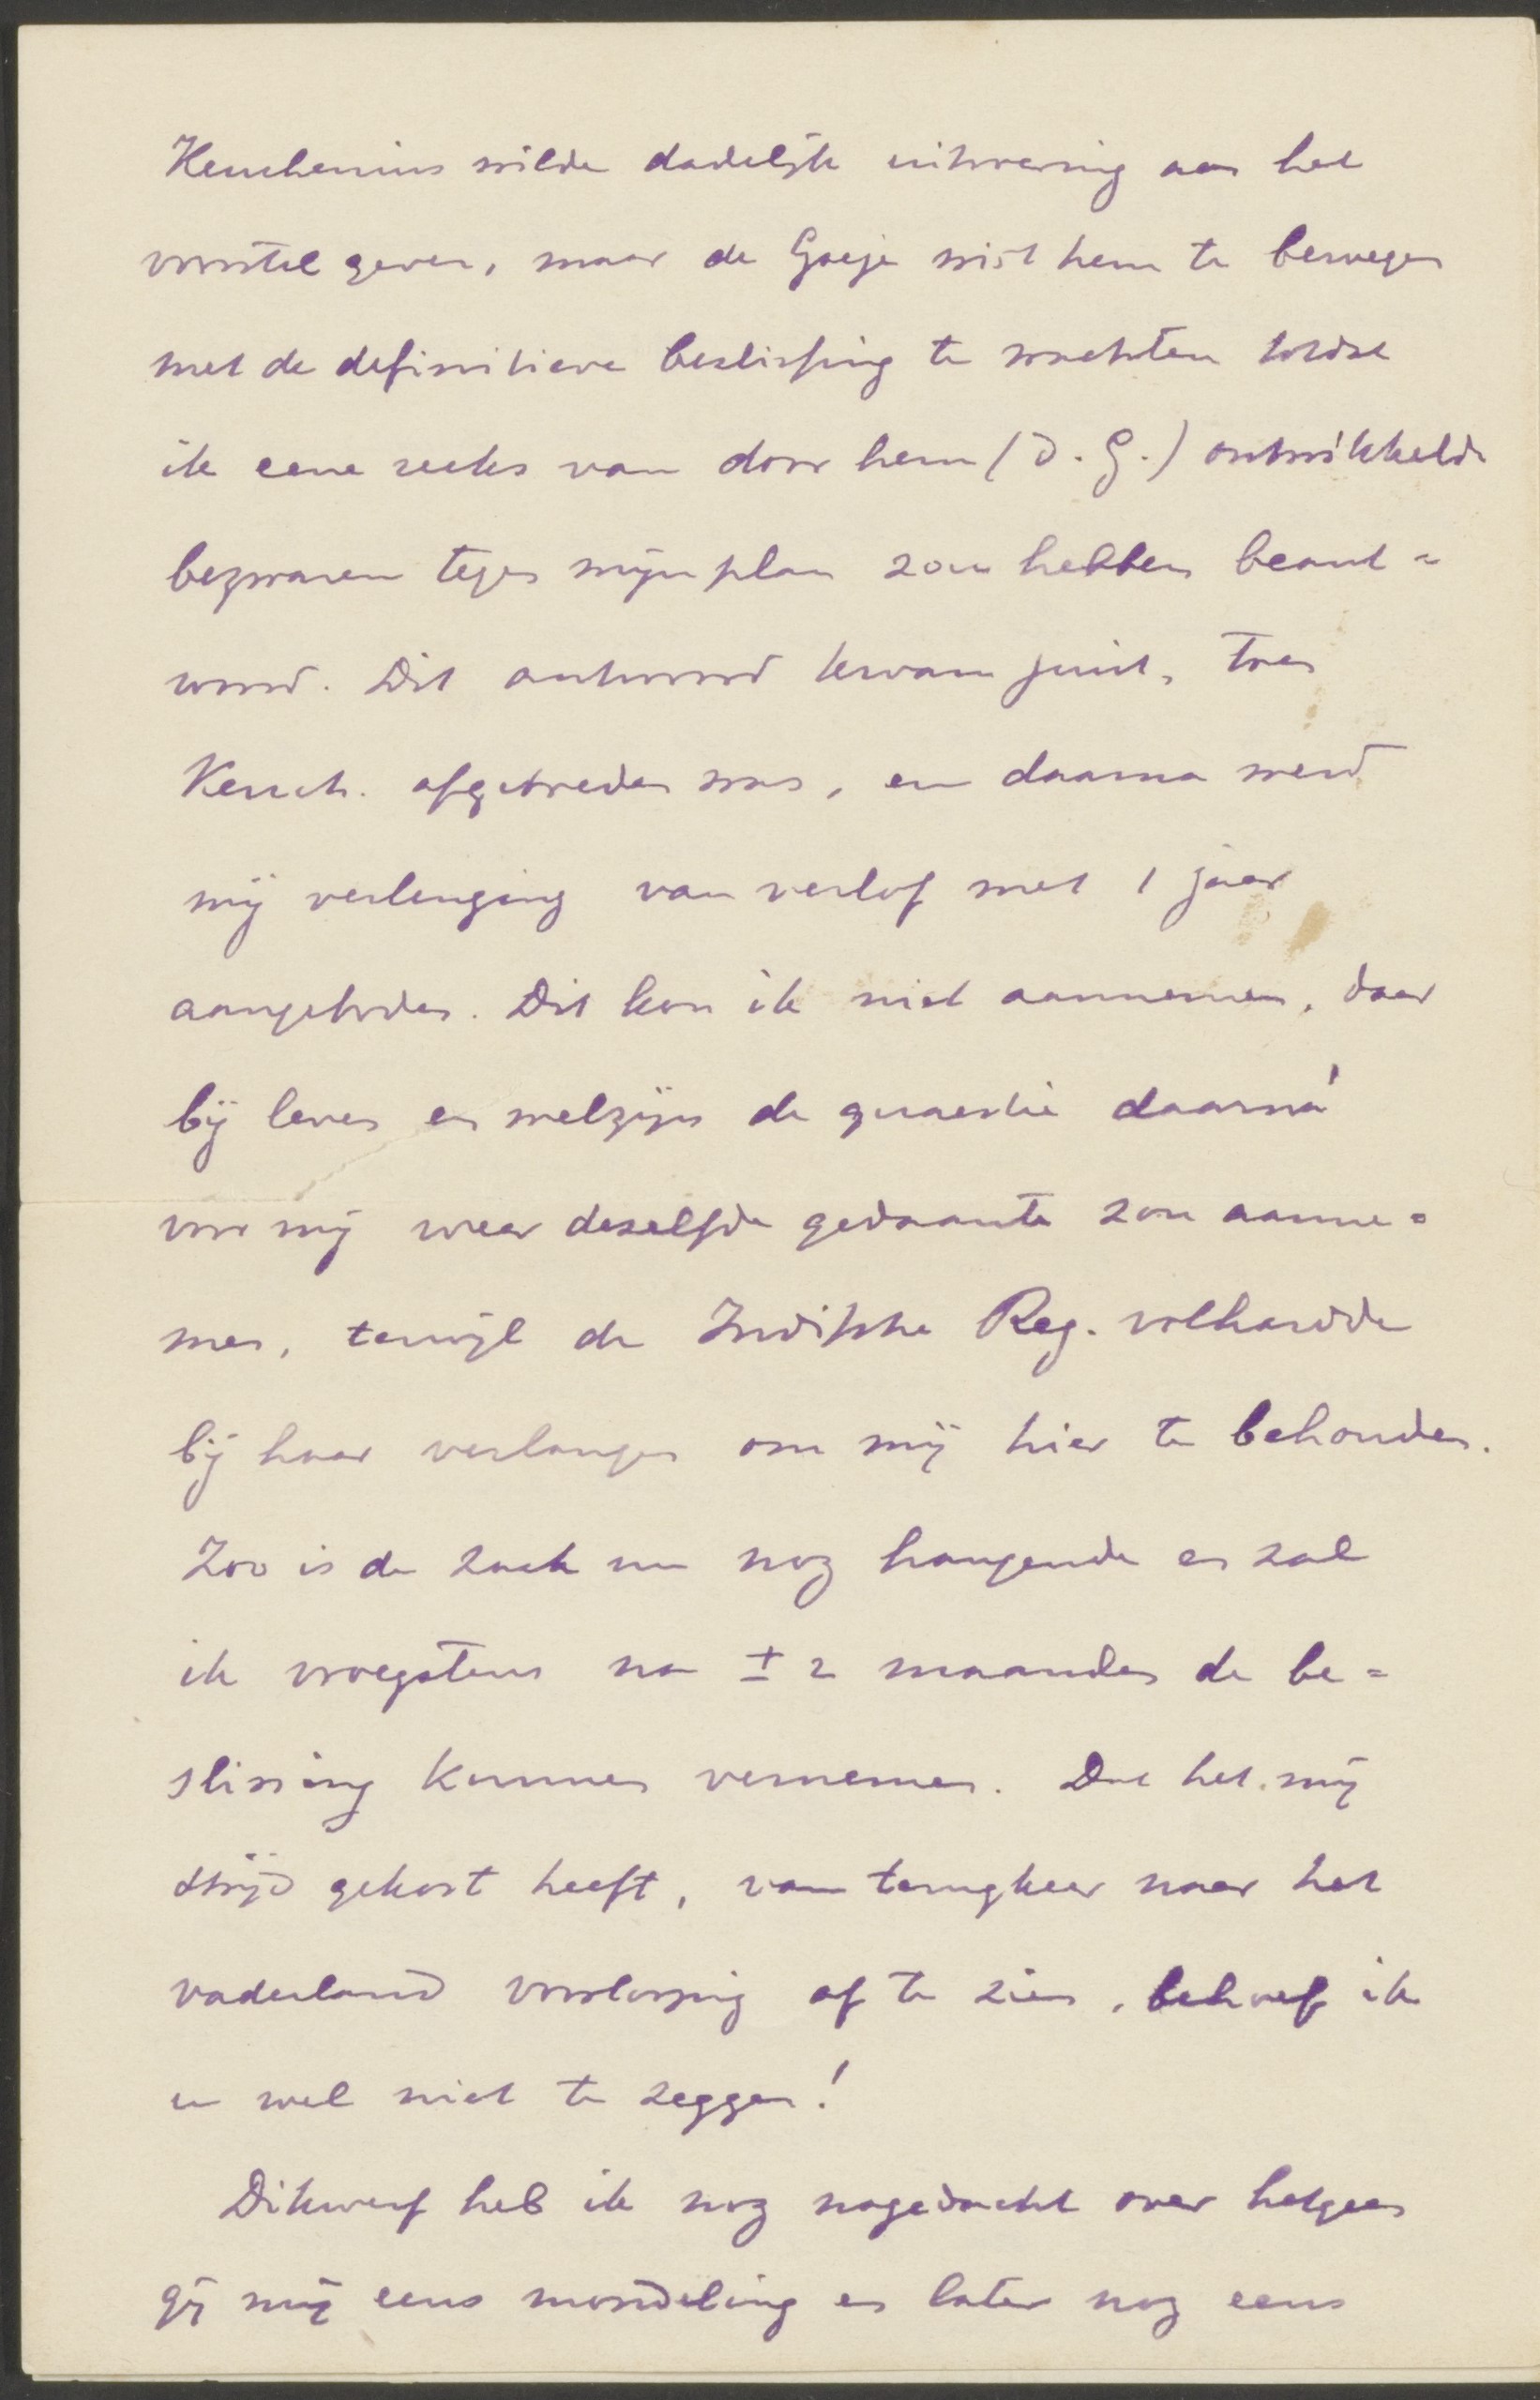 Keuchenius wilde dadelijk uitvoering aan het
voorstel geven, maar de Goeje wist hem te bewegen
met de definitieve beslissing te wachten totdat
ik eene reeks van door hem (d. G.) ontwikkelde
bezwaren tegen mijn plan zou hebben beant=
woord. Dit antwoord kwam juist, toen
Keuch. afgetreden was, en daarna werd
mij verlenging van verlof met 1 jaar
aangeboden. Dit kon ik niet aannemen, daar
bij leven en welzijn de quaestie daarná
voor mij weer dezelfde gedaante zou aanne=
men, terwijl de Indische Reg. volhardde
bij haar verlangen om mij hier te behouden.
Zoo is de zaak nu nog hangende en zal
ik vroegstens na ± 2 maanden de be=
slissing kunnen vernemen. Dat het mij
strijd gekost heeft, van terugkeer naar het
vaderland voorloopig af te zien, behoef ik
u wel niet te zeggen!
Dikwerf heb ik nog nagedacht over hetgeen
gij mij eens mondeling en later nog eens